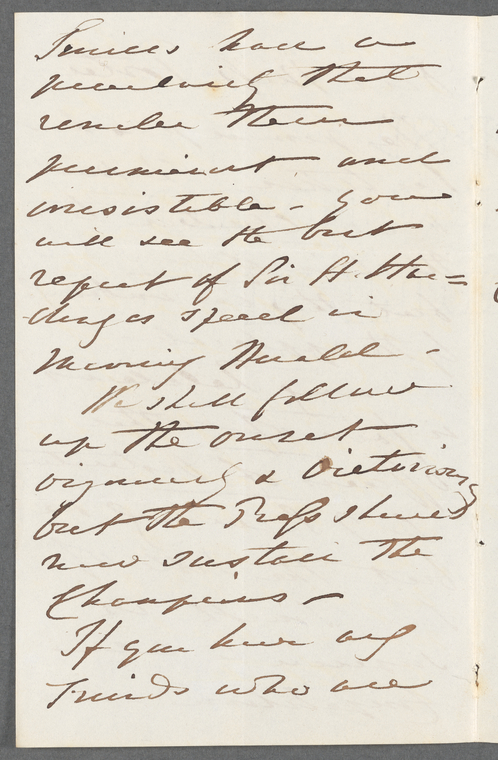 have a
that
render them
permanent and
irresistible - you
will see the best
report of Sir H. Har=
dinge's speech in
Morning Herald -
We shall follow
up the onset
vigorously & victoriously
but the Press should
now sustain the
Champions -
If you have any
friends who are